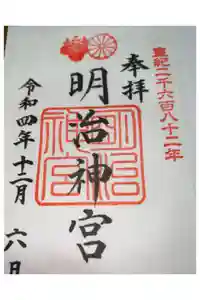 皇紀二千六百八十二年
奉拝
明治神宮
明治神宮
令和四年十二月六日